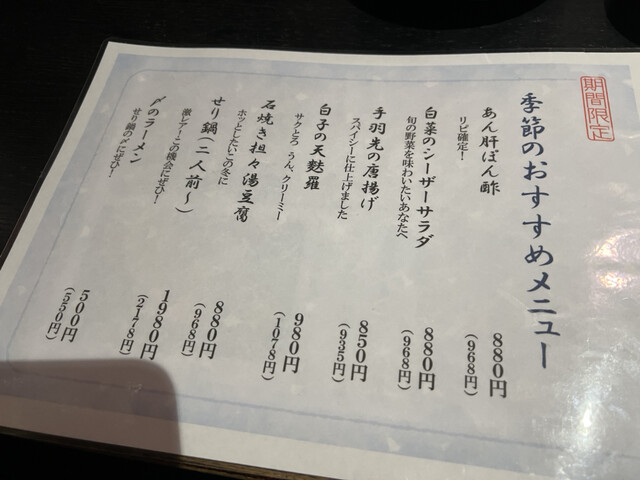 期間限定
季節のおすすめメニュー
あん肝ぽん酢
リピ確定!
880円
(968円)
白菜のシーザーサラダ
旬の野菜を味わいたいあなたへ
880円
(968円)
手羽先の唐揚げ
スパイシーに仕上げました
850円
(935円)
白子の天麩羅
サクとろ うん、クリーミー
980円
(1078円)
石焼き担々湯豆腐
ホッとしたいこの冬に
880円
(968円)
せり鍋(二人前~)
激レアーこの機会にぜひ!
1980円
(2178円)
〆のラーメン
せり鍋の〆にぜひ!
500円
(550円)